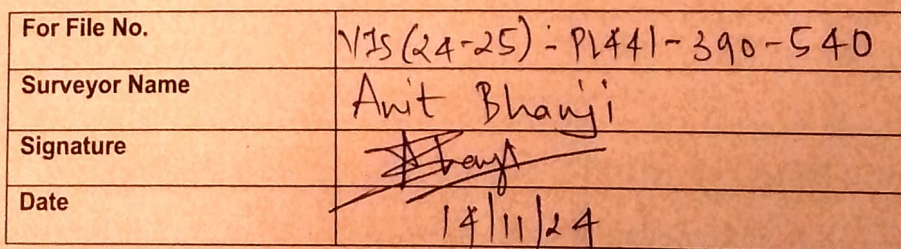 For File No. VIS(24-25)-PL441-390-540
Surveyor Name Anit Bhanji
Signature
Date 14/11/24